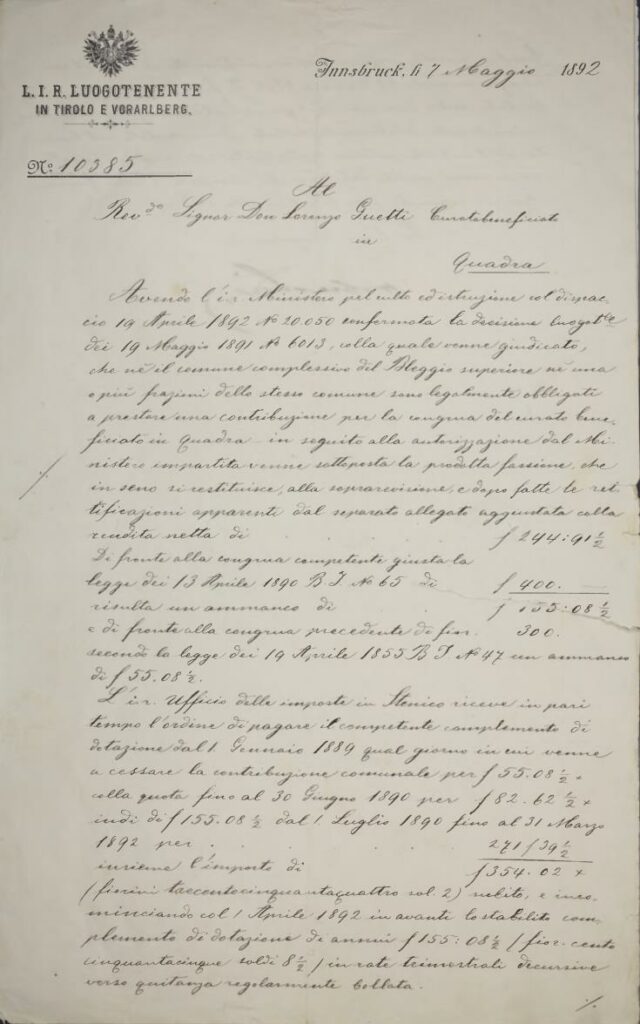 L. I. R. LUOGOTENENTE
IN TIROLO E VORARLBERG.
Innsbruck, li 7 Maggio 1892
No: 10385
Al
Rev.do Signor Don Lorenzo Guetti Curatobeneficiato
in
Quadra
Avendo l'i.r. Ministero pel culto ed istruzione col dispac-
cio 19 Aprile 1892 No 20.050 confermata la decisione luogot.le
dei 19 Maggio 1891 No 6013, colla quale venne giudicato,
che nè il comune complessivo del Bleggio superiore nè una
o più frazioni dello stesso comune sono legalmente obbligati
a prestare una contribuzione per la congrua del curato bene-
ficiato in Quadra - in seguito alla autorizzazione dal Mi-
nistero impartita venne sottoposta la prodotta fassione, che
in seno si restituisce, alla soprarevisione, e dopo fatte le ret-
tificazioni apparenti dal separato allegato aggiustata colla
rendita netta di f 244:91 1/2
Di fronte alla congrua competente giusta la
legge dei 13 Aprile 1890 B. I. No 65 di f 400.
risulta un ammanco di f 155:08 1/2
e di fronte alla congrua precedente di fior. 300.
secondo la legge dei 19 Aprile 1885 B I No 47 un ammanco
di f 55.08 1/2.
L'i.r. Ufficio delle imposte in Stenico riceve in pari
tempo l'ordine di pagare il competente complemento di
dotazione dal 1 Gennaio 1889 qual giorno in cui venne
a cessare la contribuzione comunale per f 55.08 1/2 x
colla quota fino al 30 Giugno 1890 per f 82.62 1/2 x
indi di f 155.08 1/2 dal 1 Luglio 1890 fino al 31 Marzo
1892 per 271 f 39 1/2
insieme l'importo di f 354.02 x
(fiorini trecentocinquantaquattro sol. 2) subito, e inco-
minciando col 1 Aprile 1892 in avanti lo stabilito com-
plemento di dotazione di annui f 155:08 1/2 / fior. cento
cinquantacinque soldi 8 1/2 / in rate trimestrali decursive
verso quitanza regolarmente bollata.
./.